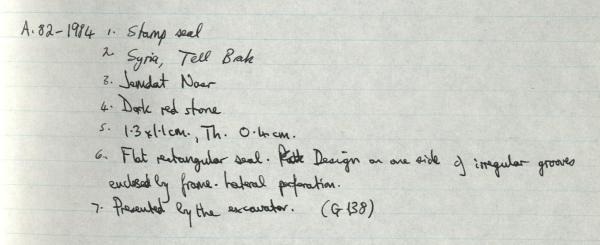 A.82-1984 1. Stamp seal
2. Syria, Tell Brak
3. Jemdat Nasr
4. Dark red stone
5. 1.3 x 1.1 cm., Th. 0.4 cm.
6. Flat rectangular seal. Design on one side of irregular grooves
enclosed by frame. Lateral perforation.
7. Presented by the excavator. (G 138)